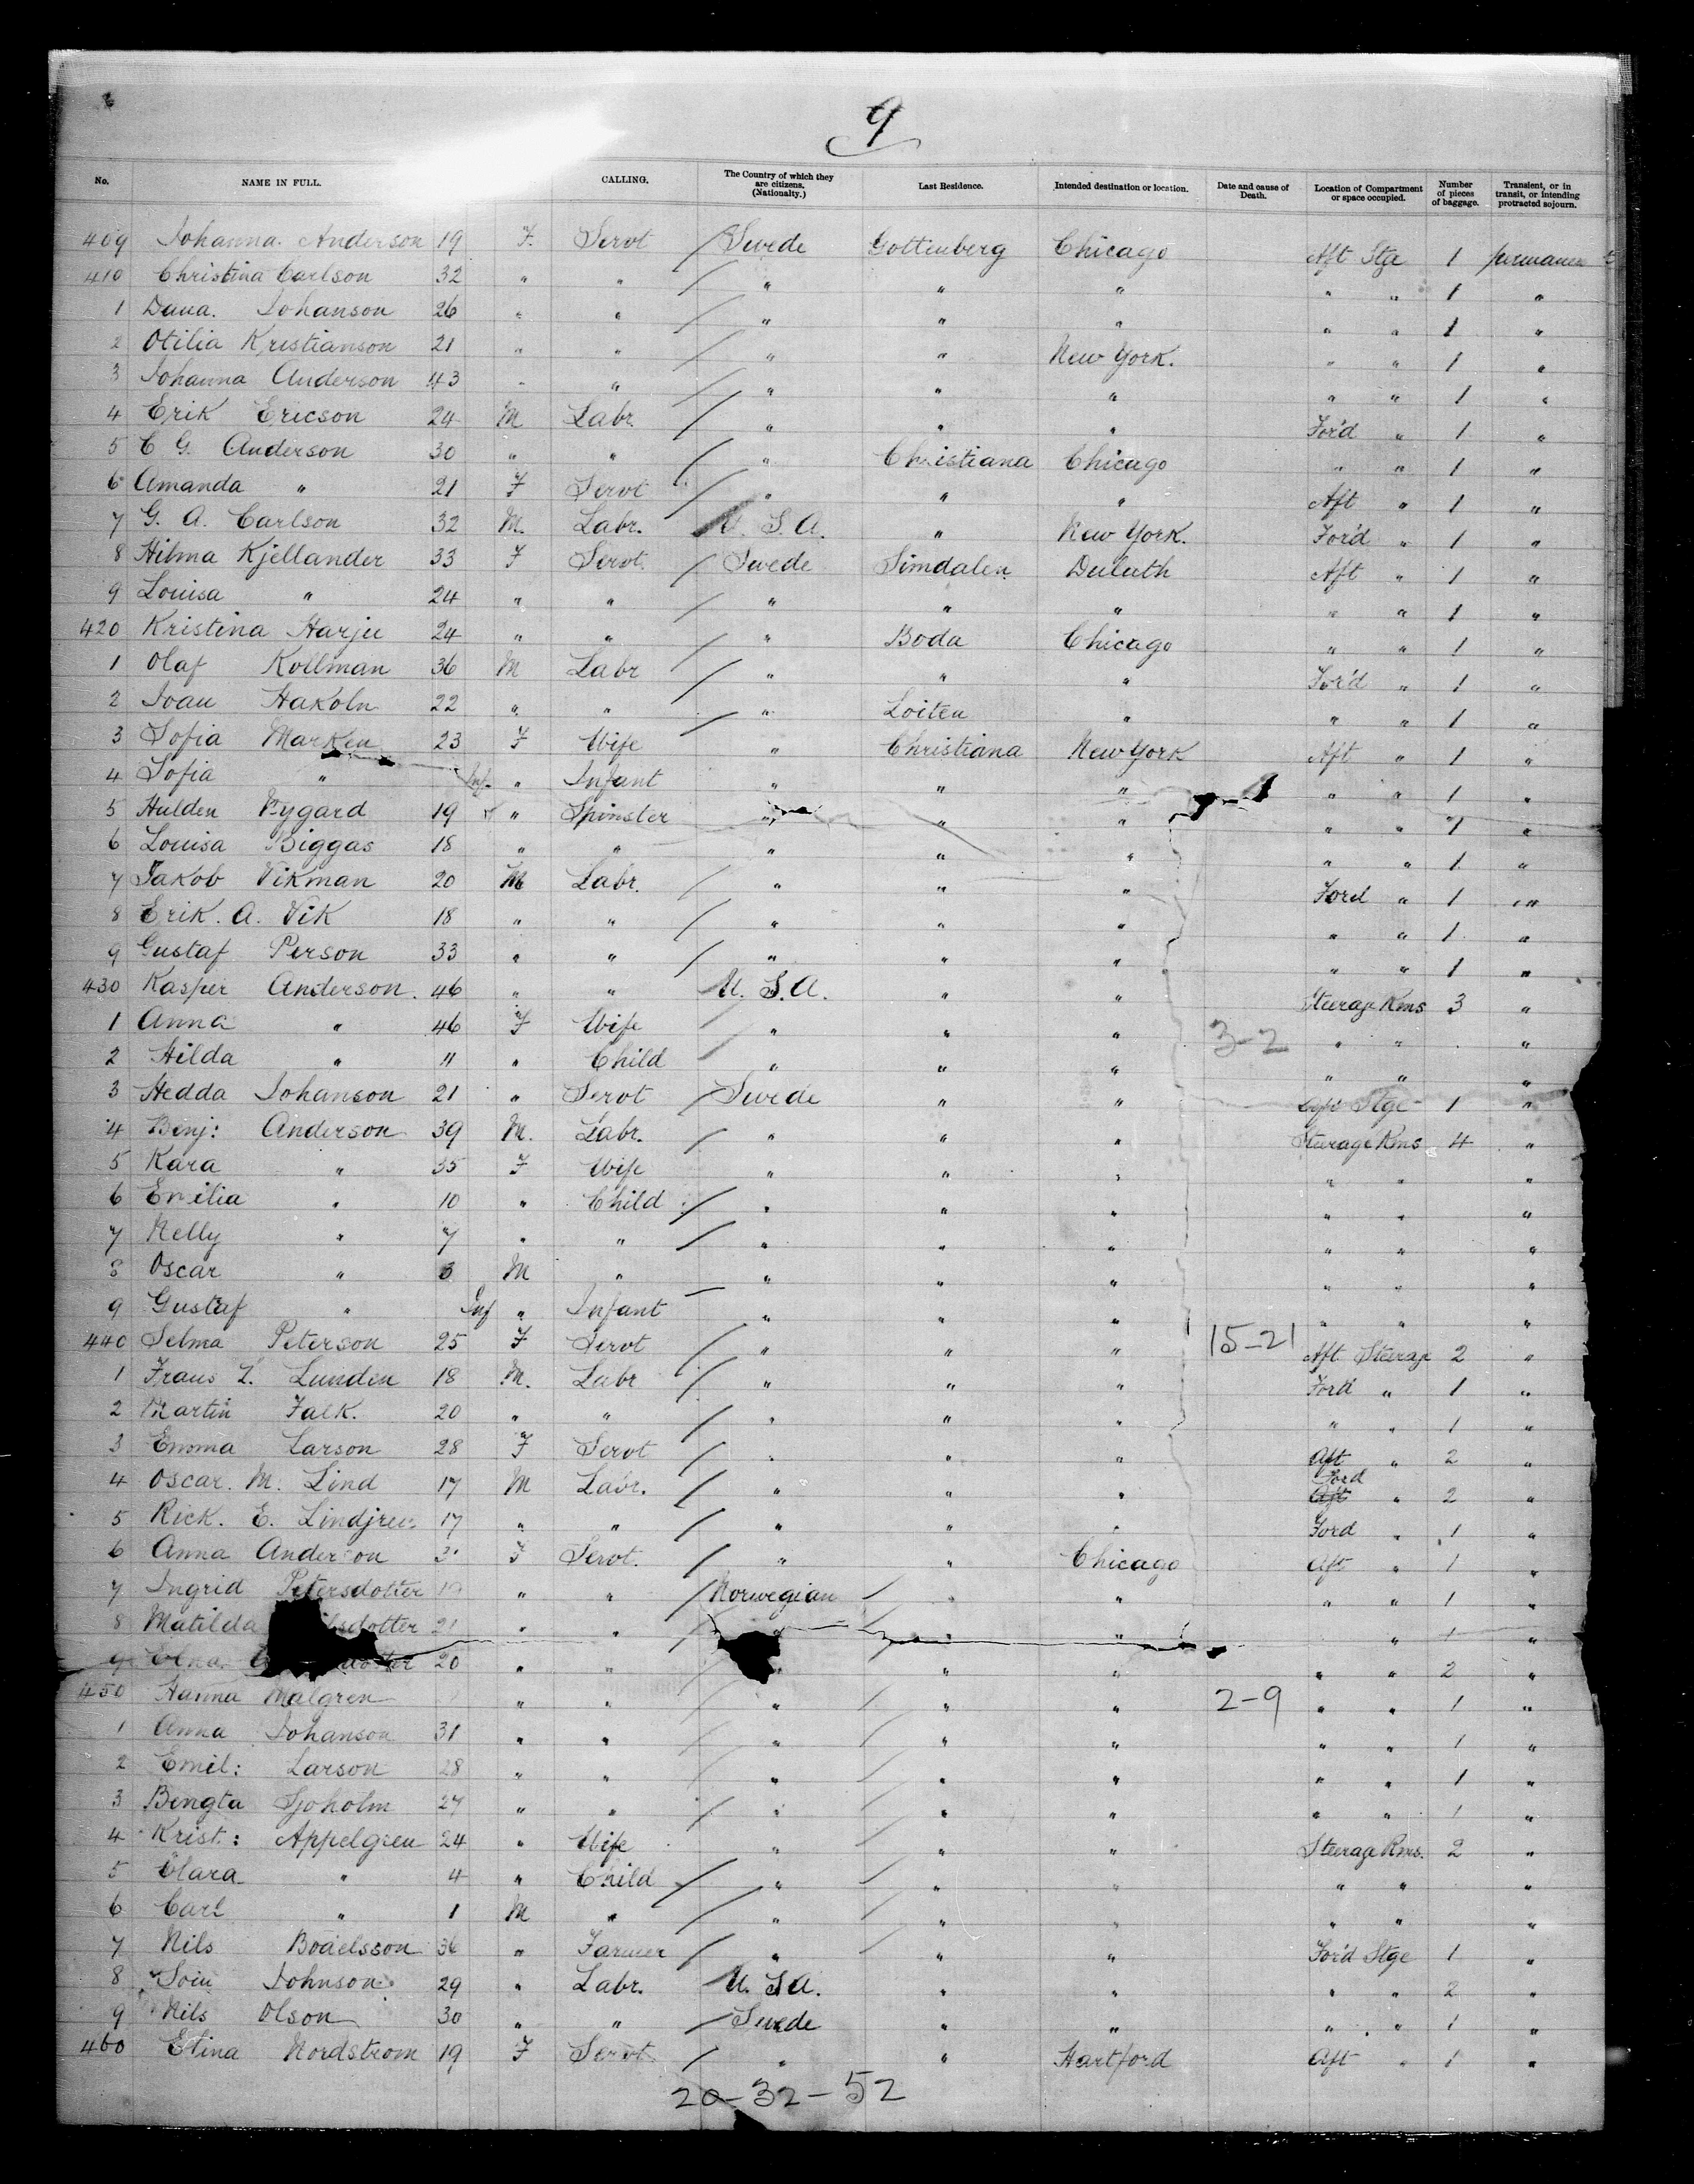 9
No. NAME IN FULL. CALLING. The Country of which they are citizens. (Nationality.) Last Residence. Intended destination or location. Date and cause of Death. Location of Compartment or space occupied. Number of pieces of baggage. Transient, or in transit, or intending protracted sojourn.
409 Johanna Anderson 19 F. Servt / Swede Gottenberg Chicago Aft Stg 1 permanent
410 Christina Carlson 32 " " / " " " " " 1 "
1 Johanson 26 " " / " " " " " 1 "
2 Otilia Kristianson 21 " " / " " New York. " " 1 "
3 Johanna Anderson 43 " " / " " " " " 1 "
4 Erik Ericson 24 M Labr. / " " " For'd " 1 "
5 C G. Anderson 30 " " / " Christiana Chicago " " 1 "
6 Amanda " 21 F Servt / " " " Aft " 1 "
7 G. A. Carlson 32 M. Labr. U. S. A. " New York. For'd " 1 "
8 Hilma Kjellander 33 F Servt. / Swede Simdalen Duluth Aft " 1 "
9 Louisa " 24 " " / " " " " " 1 "
420 Kristina Harju 24 " " / " Boda Chicago " " 1 "
1 Olaf Kollman 36 M Labr / " " " For'd " 1 "
2 Joau Hakoln 22 " " / " Loiten " " " 1 "
3 Sofia Marken 23 F Wife " Christiana New York Aft " 1 "
4 Sofia " Inf. " Infant " " " " " 1 "
5 Hulden Nygard 19 " Spinster " " " " " 1 "
6 Louisa Biggas 18 " " " " " " " 1 "
7 Jakob Vikman 20 M Labr. / " " " Ford " 1 "
8 Erik. A. Vik 18 " " / " " " " " 1 "
9 Gustaf Person 33 " " / " " " " " 1 "
430 Kasper Anderson. 46 " " U. S. A. " " Steerage Rms 3 "
1 Anna " 46 F Wife / " " " 3-2 " " "
2 Hilda " 11 " Child / " " " " " "
3 Hedda Johanson 21 " Servt / Swede " " Aft Stge 1 "
4 Benj: Anderson 39 M. Labr. / " " " Steerage Rms 4 "
5 Kara " 35 F Wife " " " " " "
6 Emilia " 10 " Child / " " " " " "
7 Nelly " 7 " " / " " " " " "
8 Oscar " 3 M " " " " " " "
9 Gustaf " Inf " Infant " " " " " "
440 Selma Peterson 25 F Servt / " " " 15-21 Aft Steerage 2 "
1 Frans L. Lunden 18 M. Labr / " " " Ford " 1 "
2 Martin Falk. 20 " " / " " " " " 1 "
3 Emma Larson 28 F Servt / " " " Aft " 2 "
4 Oscar. M. Lind 17 M Labr. / " " " Ford Aft " 2 "
5 Rick. E. Lindjren 17 " " / " " " Ford " 1 "
6 Anna Anderson F Servt. / " " Chicago Aft " 1 "
7 Ingrid Petersdotter 19 " " / Norwegian " " " " 1 "
8 Matilda 21 " " / " " " 1 "
9 20 " " / " " " " 2 "
450 Hanna Malgren " " / " " " 2-9 " " 1 "
1 Anna Johanson 31 " " / " " " " " 1 "
2 Emil: Larson 28 " " / " " " " " 1 "
3 Bengta Sjoholm 27 " " / " " " " " 1 "
4 Krist: Appelgren 24 " Wife " " " Steerage Rms. 2 "
5 Clara " 4 " Child / " " " " " "
6 Carl " 1 M " / " " " " " "
7 Nils Boaelsson 36 " Farmer / " " " For'd Stge 1 "
8 Johnson 29 " Labr. U. S A. " " " " 2 "
9 Nils Olson 30 " " / Swede " " " " 1 "
460 Elina Nordstrom 19 F Servt. / " " Hartford Aft " 1 "
20-32-52